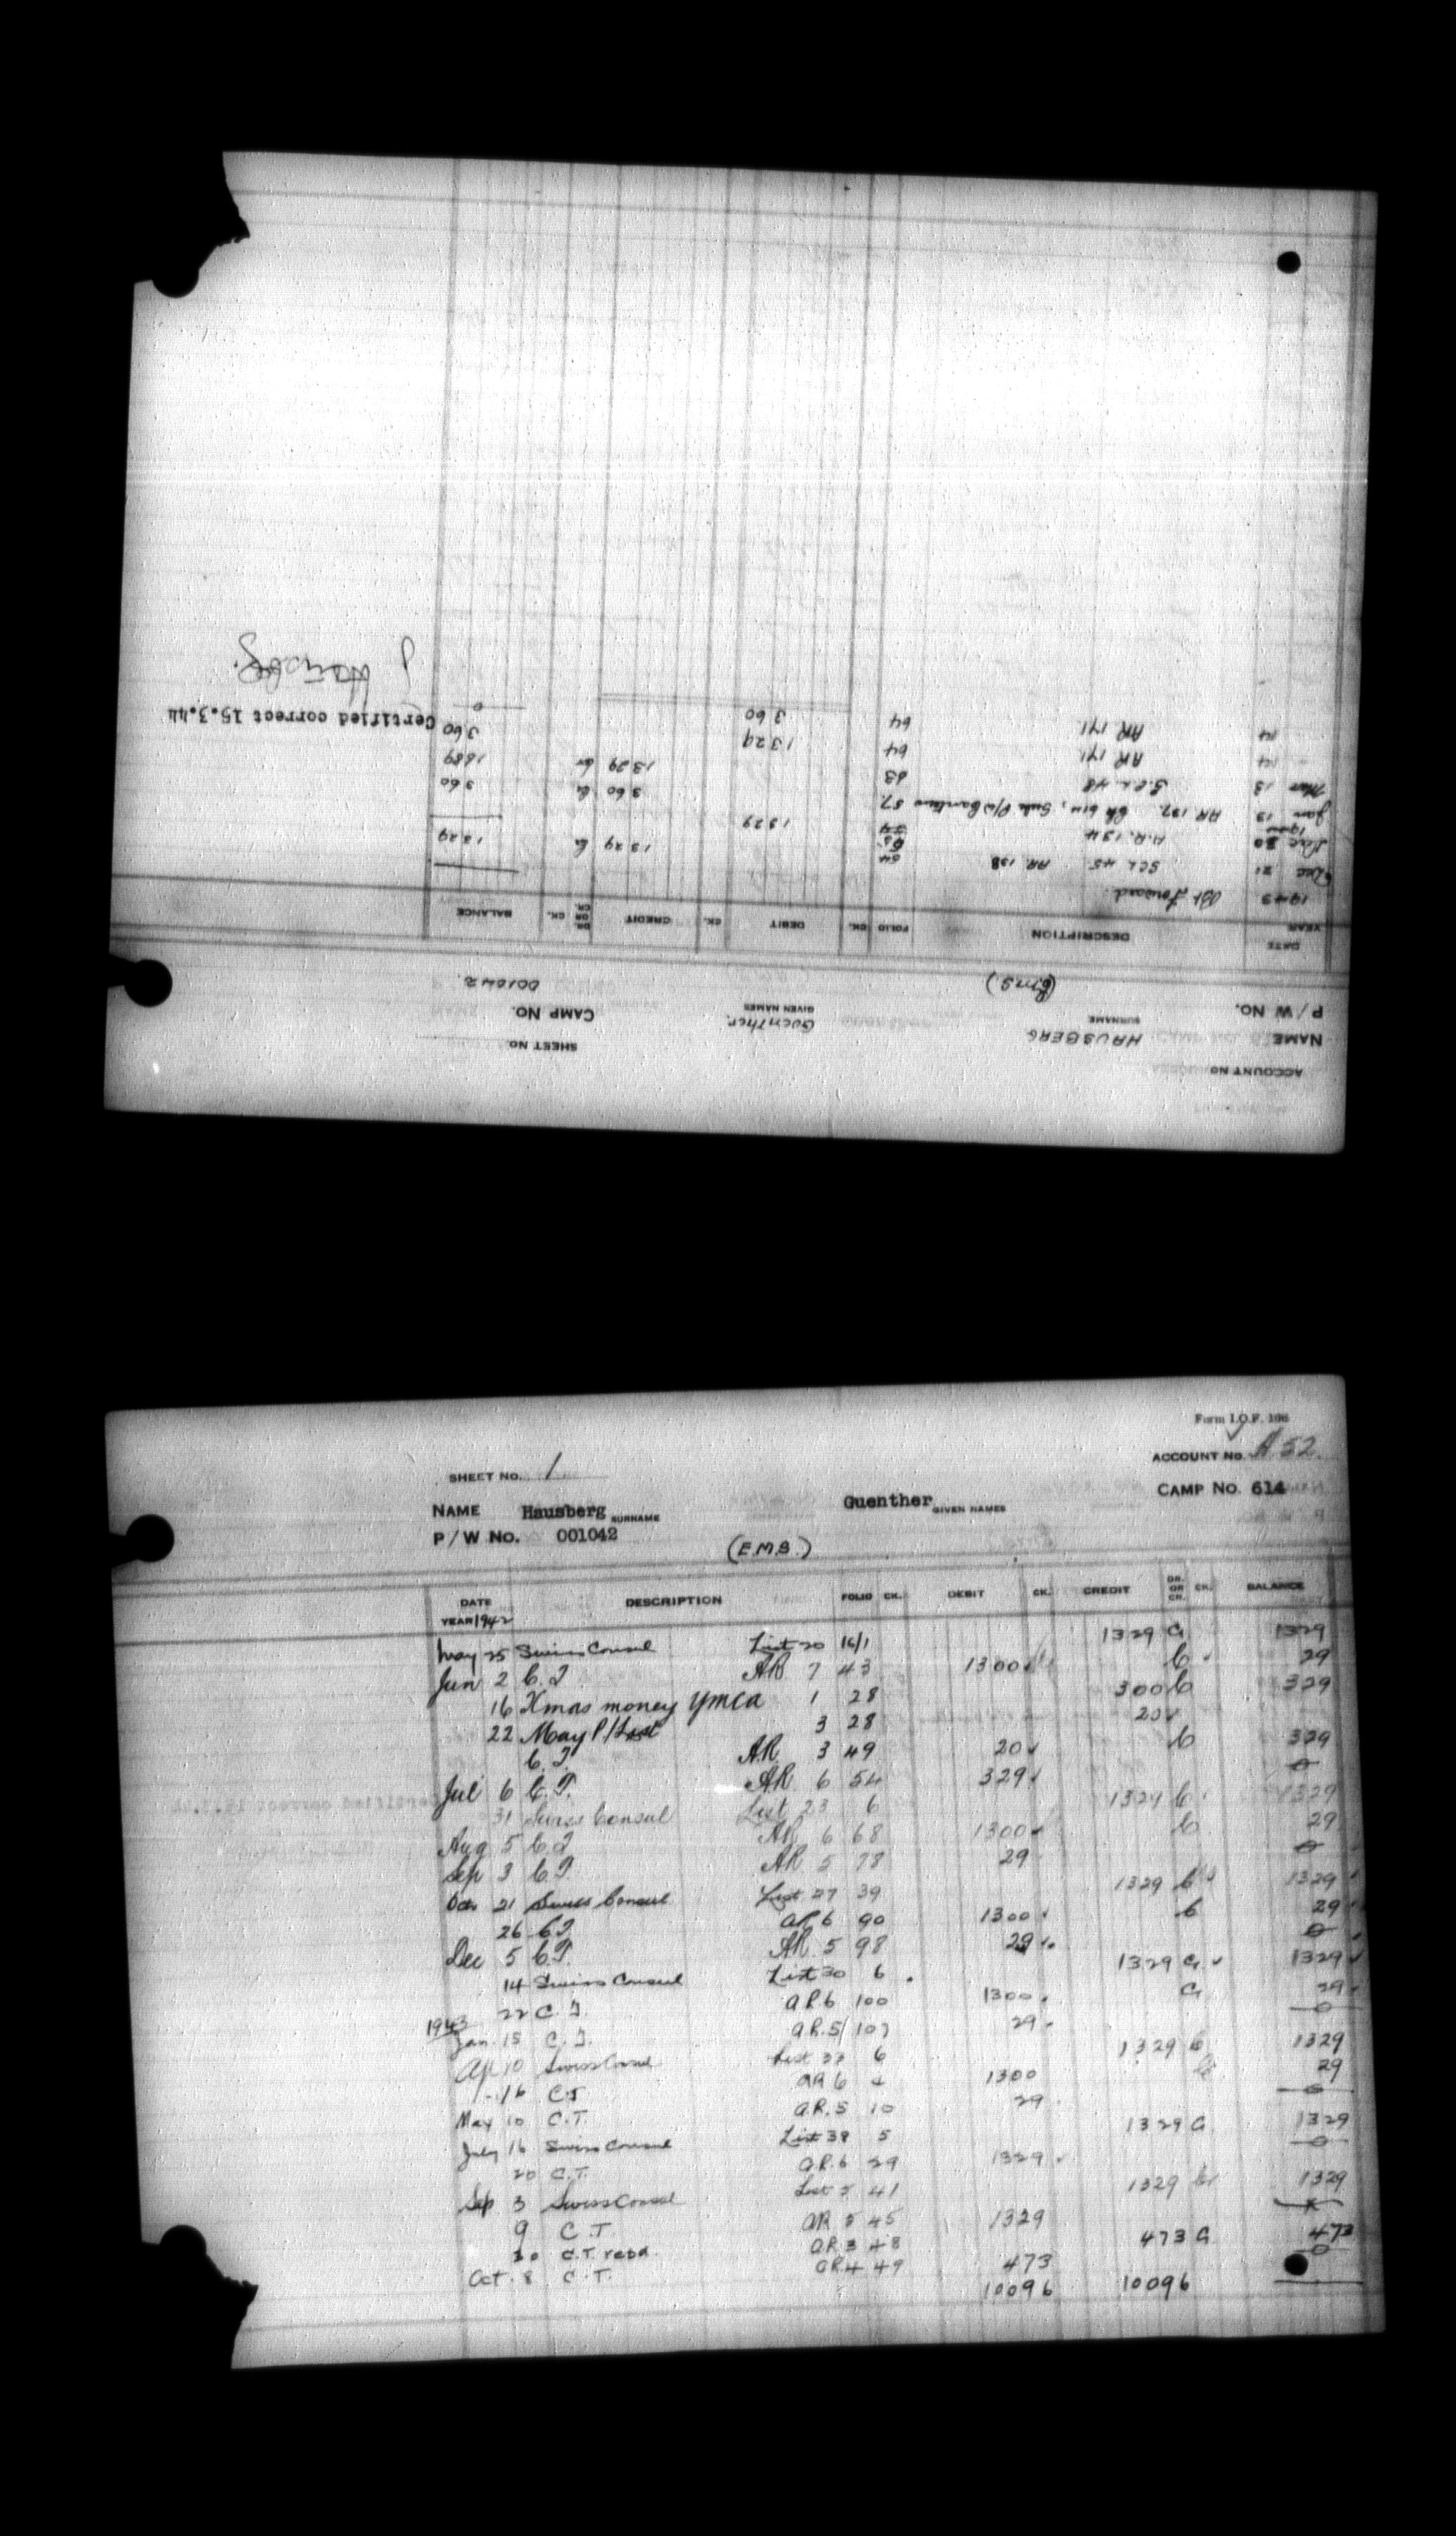 ACCOUNT NO
NAME HAUSBERG SURNAME Guenther. GIVEN NAMES SHEET NO.
P/W NO. (E.M.S.) CAMP NO. 001042
DATE YEAR DESCRIPTION FOLIO CK. DEBIT CK. CREDIT DR. OR CR. CK. BALANCE
1943 Forward.
Dec 21 SCL 45 AR 138 64 13 29 Cr 13 29
Dec 30 A.R. 134 13 29
1944
Jan 13 AR 137. Ch 614, Sub P/W Canteen 57. 3 60 Cr 3 60
Mar 13 S.C.L. 48 63 13 29 Cr 16 89
14 AR 141 64 13 29 3 60
14 AR 141 64 3 60 0
Certified correct 15.3.44
Hausberg.
Form I.O.F. 196
ACCOUNT NO. A 52.
SHEET NO. 1
CAMP NO. 614
NAME Hausberg SURNAME Guenther GIVEN NAMES
P/W NO. 001042
(E.M.S.)
DATE DESCRIPTION FOLIO CK. DEBIT CK. CREDIT DR. OR CR. CK. BALANCE
YEAR 1942
May 25 Swiss Consul List 20 16/1 13 29 Cr 13 29
Jun 2 C.T. AR 7 43 13 00 Cr 29
16 Xmas money YMCA 1 28 3 00 Cr 3 29
22 May P/List 3 28 20
C.T. AR 3 49 20 Cr 3 29
Jul 6 C.T. AR 6 54 3 29 0
31 Swiss Consul List 23 6 13 29 Cr 13 29
Aug 5 C.T. AR 6 68 13 00 Cr 29
Sep 3 C.T. AR 5 78 29 0
Oct 21 Swiss Consul List 27 39 13 29 Cr 13 29
26 C.T. AR 6 90 13 00 Cr 29
Dec 5 C.T. AR 5 98 29 0
14 Swiss Consul List 30 6 13 29 Cr 13 29
22 C.T. AR 6 100 13 00 Cr 29
1943
Jan. 15 C.T. A.R. 5/ 107 29 0
Apl 10 Swiss Consul List 33 6 13 29 Cr 13 29
16 C.T. AR 6 4 13 00 Cr 29
May 10 C.T. A.R. 5 10 29 0
July 16 Swiss Consul List 38 5 13 29 Cr 13 29
20 C.T. A.R. 6 29 13 29 0
Sep 3 Swiss Consul List 5 41 13 29 Cr 13 29
9 C.T. AR 5 45 13 29
C.T. repd. A.R. 3 48 4 73 Cr 4 73
Oct. 8 C.T. A.R. 4 49 4 73 0
100 96 100 96